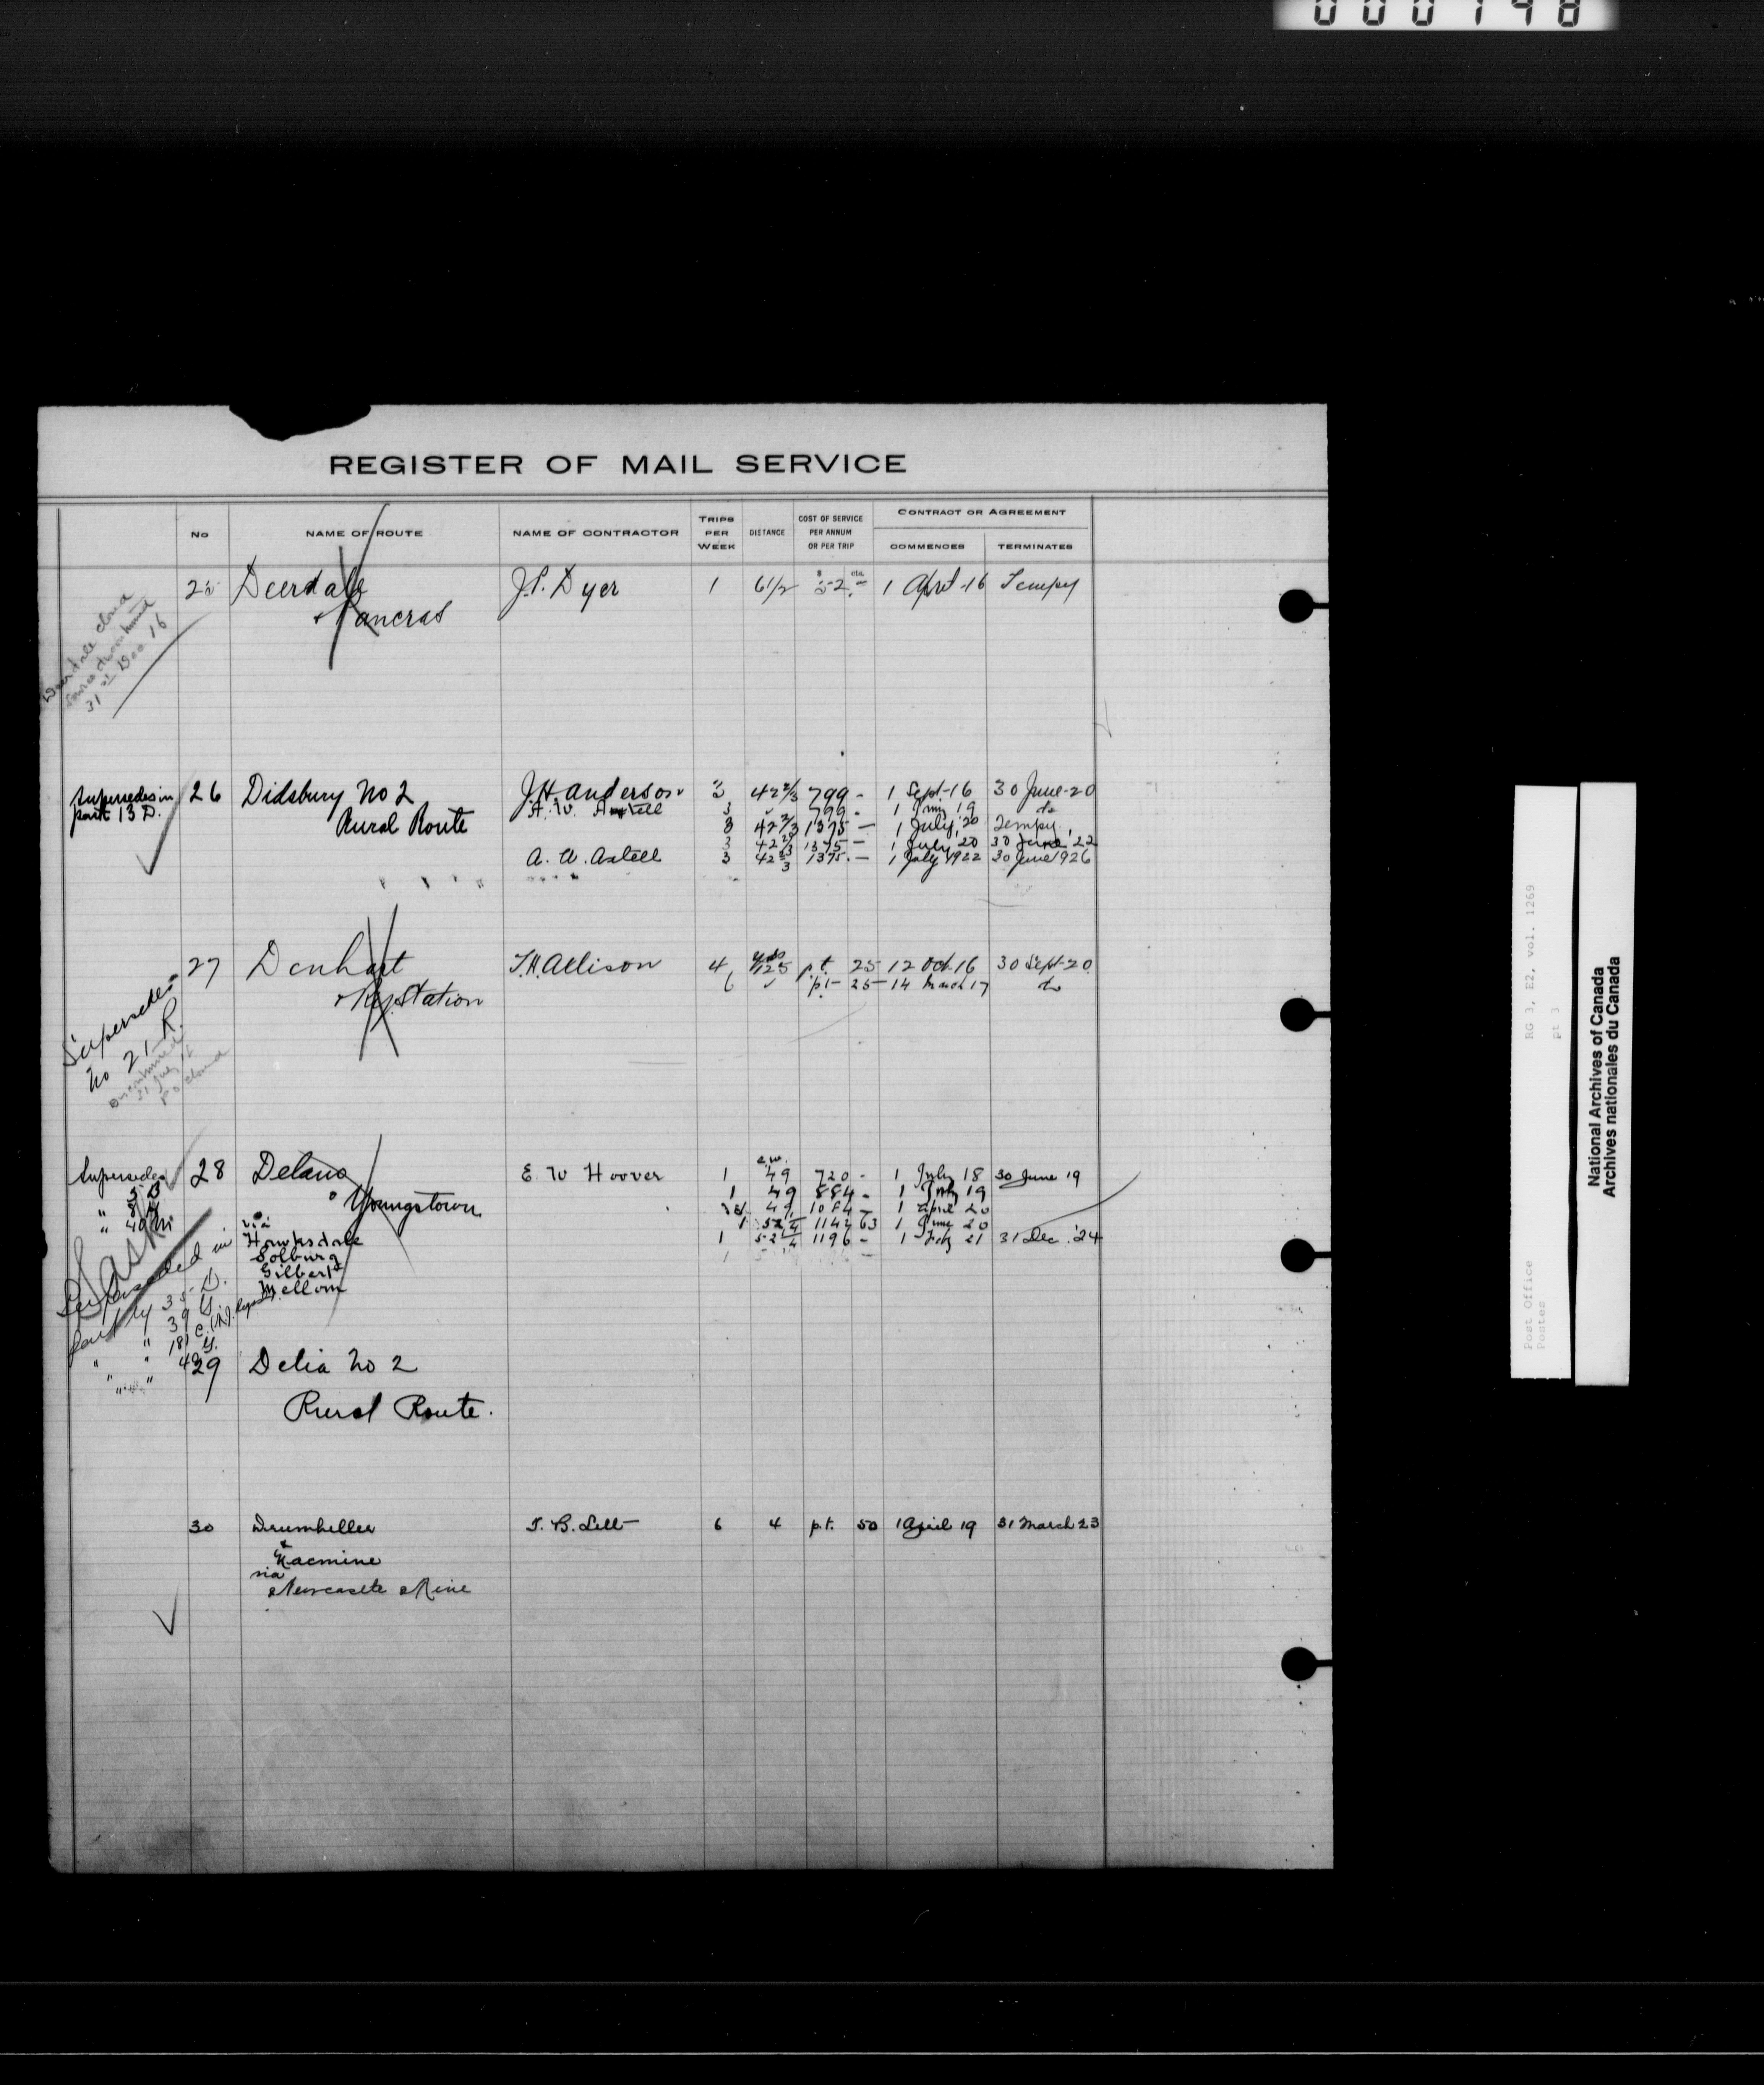 000198
REGISTER OF MAIL SERVICE
No NAME OF ROUTE NAME OF CONTRACTOR TRIPS PER WEEK DISTANCE COST OF SERVICE PER ANNUM OR PER TRIP CONTRACT OR AGREEMENT COMMENCES TERMINATES
25 Deerdale J.P. Dyer 1 6 1/2 $ 52. cts. — 1 April-16 Tempy
& Pancras
Deerdale closed
service discontinued
31st Dec 16
Supersedes in part 13 D. 26 Didsbury No 2 J.H. Anderson 3 42 2/3 799 - 1 Sept-16 30 June-20
Rural Route A. W. Axtell 3 " 799 - 1 19 do
3 42 2/3 1375 — 1 July '20 Tempy.
3 42 2/3 1375 — 1 July 20 30 June 22
A. W. Axtell 3 42 2/3 1375. — 1 July 1922 30 June 1926
27 Denhart T.H. Allison 4 yds 125 p.t. 25 12 Oct-16 30 Sept-20
& Ry Station 6 " p.t- 25 14 March 17 do
Supersedes
No 21-R.
P O closed
Supersedes 28 Delano E. W Hoover 1 e.w. 49 720 - 1 July 18 30 June 19
& Youngstown 1 49 884 - 1 July 19
49 1084 - 1 April 20
1 52 1/4 1142 63 1 June 20
1 52 1/4 1196 - 1 21 31 Dec. '24
via
Hawksdale
Solburg
Gilbert
Mellom
Sask
Superseded in
part by 35-D.
" " 39 Y.
" " 181 C.
29 Delia No 2
Rural Route.
30 Drumheller T. B. Lett 6 4 p.t. 50 1 April 19 31 March 23
&
Nacmine
via
Newcastle Mine
RG 3, E2, vol. 1269
pt 3
Post Office
Postes
National Archives of Canada
Archives nationales du Canada